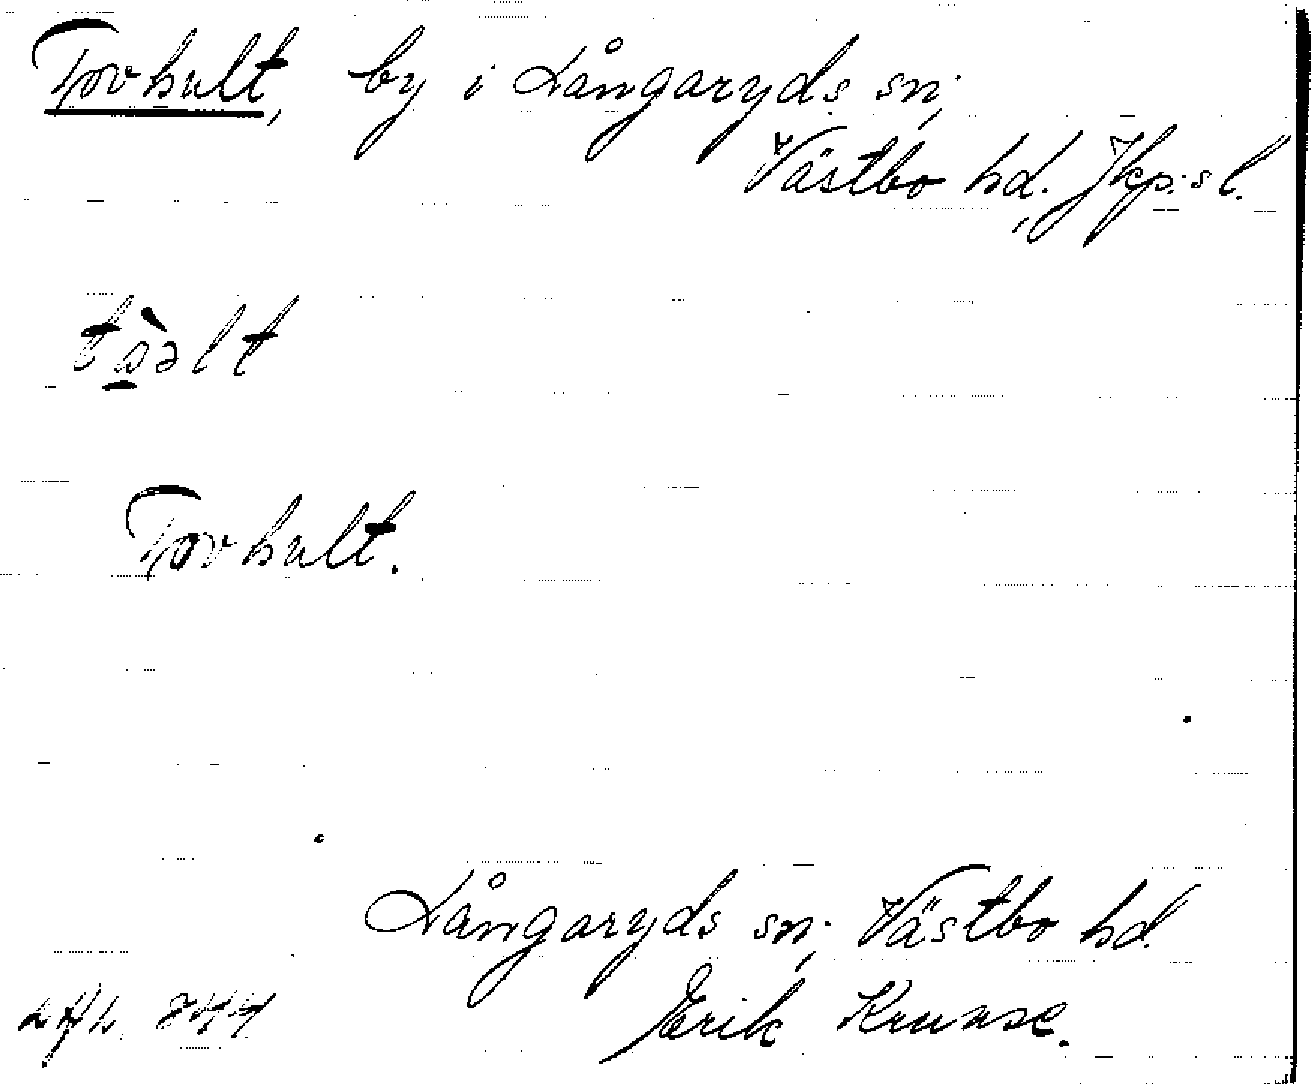 Tovhult, by i Långaryds sn,
Västbo hd, Jkp:s l.
tòəlt
Tovhult.
Långaryds sn, Västbo hd.
Erik Kruuse.